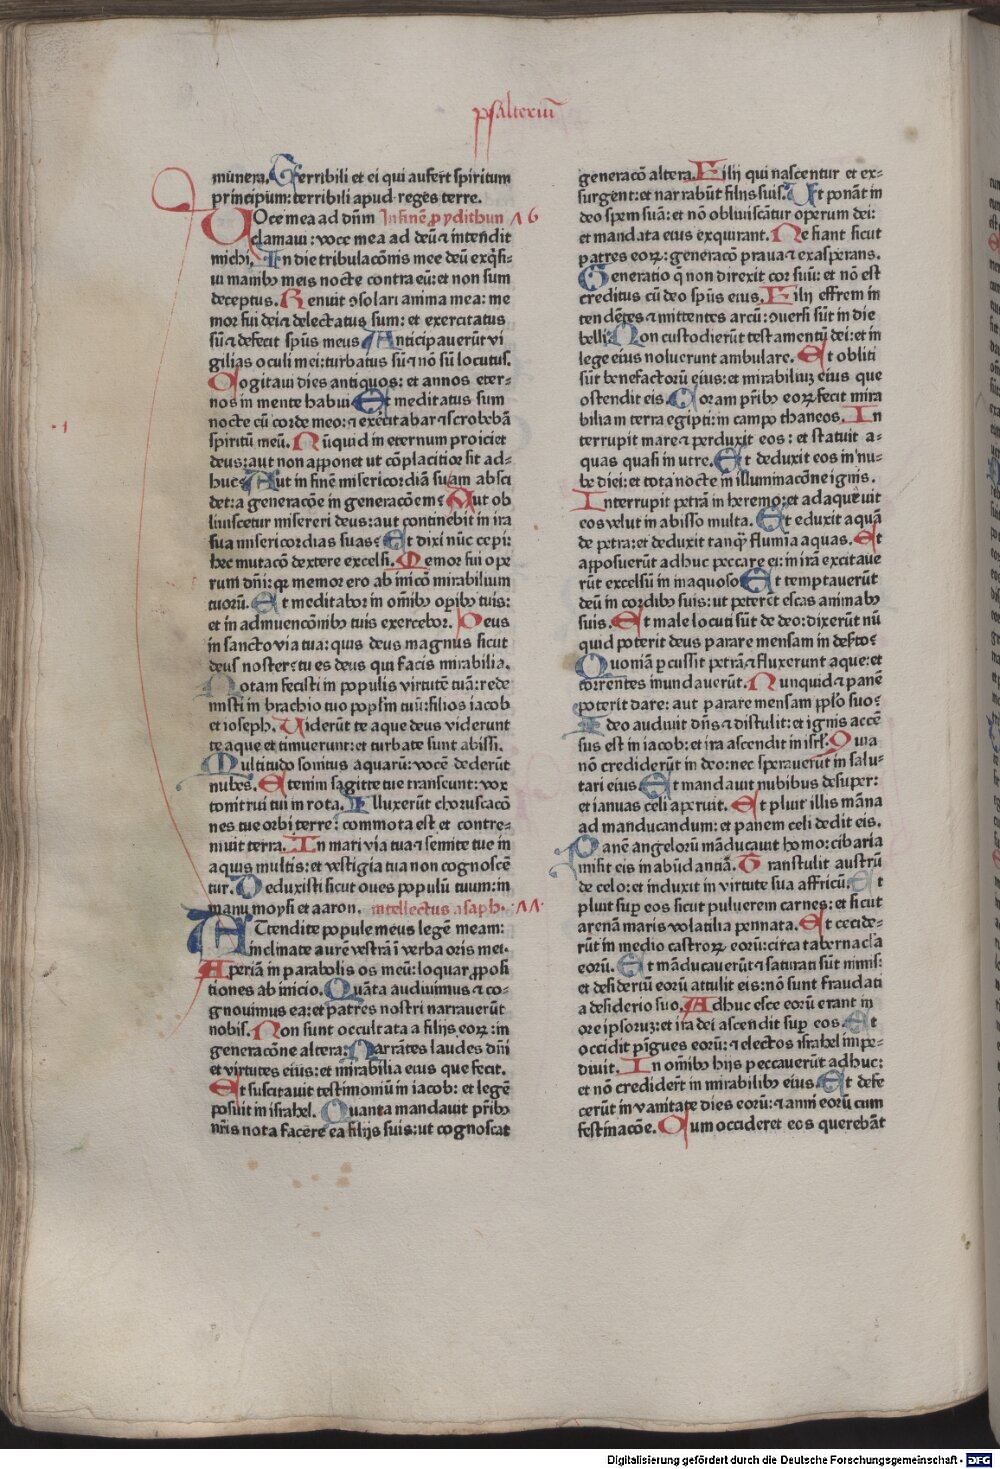 psalteriū
munera. Terribili et ei qui aufert spiritum
principium: terribili apud reges terre.
VOce mea ad dn̄m In finē ꝓ ydithun ꓥ6
clamaui: voce mea ad deū ⁊ intendit
michi. In die tribulacōnis mee deū exq̄si-
ui manibꝫ meis nocte contra eū: et non sum
deceptus. Renuit ꝯsolari anima mea: me
mor fui dei ⁊ delectatus sum: et exercitatus
sū ⁊ defecit sp̄us meus Anticipauerūt vi
gilias oculi mei: turbatus sū ⁊ nō sū locutus.
Cogitaui dies antiquos: et annos eter-
nos in mente habui Et meditatus sum
nocte cū corde meo: ⁊ exercitabar ⁊ scobebā
spiritū meū. Nūquid in eternum proiciet
deus: aut non apponet ut cōplacitior sit ad-
huc: Aut in finē misericordiā suam absci
det: a generacōe in generacōem: Aut ob
liuiscetur misereri deus: aut continebit in ira
sua misericordias suas: Et dixi nūc cepi:
hec mutacō dextere excelsi. Memor fui ope
rum dn̄i: qꝛ memor ero ab inicō mirabilium
tuorū. Et meditabor in om̄ibꝫ opībꝫ tuis:
et in adinuencōnibꝫ tuis exercebor. Deus
in sancto via tua: quis deus magnus sicut
deus noster: tu es deus qui facis mirabilia.
Notam fecisti in populis virtutē tuā: rede
misti in brachio tuo popl̄m tuū: filios iacob
et ioseph. Uiderūt te aque deus viderunt
te aque et timuerunt: et turbate sunt abissi.
Multitudo sonitus aquarū: vocē dederūt
nubes. Etenim sagitte tue transeunt: vox
tonitrui tui in rota. Illuxerūt choruscacō
nes tue orbi terre: commota est et contre-
muit terra. In mari via tua ⁊ semite tue in
aquis multis: et vestigia tua non cognoscē
tur. Deduxisti sicut oues populū tuum: in
manu moysi et aaron. intellectus asaph. ꓥꓥ
ATtendite popule meus legē meam:
inclinate aurē vestrā ī verba oris mei.
Aperiā in parabolis os meū: loquar ꝓposi
tiones ab inicio. Quāta audiuimus ⁊ co-
gnouimus ea: et patres nostri narrauerūt
nobis. Non sunt occultata a filijs eoꝝ: in
generacōne altera: Narrātes laudes dn̄i
et virtutes eius: et mirabilia eius que fecit.
Et suscitauit testimoniū in iacob: et legē
posuit in israhel. Quanta mandauit pr̄ibꝫ
nr̄is nota facere ea filijs suis: ut cognoscat
generacō altera. Filij qui nascentur et ex-
surgent: et narrabūt filijs suis. Ut ponāt in
deo spem suā: et nō obliuiscātur operum dei:
et mandata eius exquirant. Ne fiant sicut
patres eoꝝ: generacō praua ⁊ exasperans.
Generatio q̄ non direxit cor suū: et nō est
creditus cū deo sp̄us eius. Filij effrem in
tendētes ⁊ mittentes arcū: ꝯuersi sūt in die
belli: Non custodierūt testamentū dei: et in
lege eius noluerunt ambulare. Et obliti
sūt benefactorū eius: et mirabiliuꝫ eius que
ostendit eis. Coram pr̄ibꝫ eoꝝ fecit mira
bilia in terra egipti: in campo thaneos. In
terrupit mare ⁊ perduxit eos: et statuit a-
quas quasi in utre. Et deduxit eos in nu-
be diei: et tota nocte in illuminacōne ignis.
Interrupit petrā in heremo: et adaqueuit
eos velut in abisso multa. Et eduxit aquā
de petra: et deduxit tanqꝫ flumīa aquas. Et
apposuerūt adhuc peccare ei: in irā excitaue
rūt excelsū in inaquoso Et temptauerūt
deū in cordibꝫ suis: ut peterēt escas animabꝫ
suis. Et male locuti sūt de deo: dixerūt nū
quid poterit deus parare mensam in deserto:
Quoniā ꝑcussit petrā ⁊ fluxerunt aque: et
torrentes inundauerūt. Nunquid ⁊ panē
poterit dare: aut parare mensam ꝓplo suo:
Ideo audiuit dn̄s ⁊ distulit: et ignis accē
sus est in iacob: et ira ascendit in isrl̄. Quia
nō crediderūt in deo: nec sperauerūt in salu-
tari eius. Et mandauit nubibus desuper:
et ianuas celi aperuit. Et pluit illis māna
ad manducandum: et panem celi dedit eis.
Panē angelorū māducauit homo: cibaria
misit eis in abūdantiā. Transtulit austrū
de celo: et induxit in virtute sua affricū. Et
pluit suꝑ eos sicut puluerem carnes: et sicut
arenā maris volatilia pennata. Et cecide-
rūt in medio castroꝝ eorū: circa tabernacl̄a
eorū. Et māducauerūt ⁊ saturati sūt nimis:
et desideriū eorū attulit eis: nō sunt fraudati
a desiderio suo. Adhuc esce eorū erant in
ore ipsoruꝫ: et ira dei ascendit suꝑ eos. Et
occidit pīgues eorū: ⁊ electos israhel impe-
diuit. In om̄ibꝫ hijs peccauerūt adhuc:
et nō crediderūt in mirabilibꝫ eius. Et defe
cerūt in vanitate dies eorū: ⁊ anni eorū cum
festinacōe. Cum occideret eos querebāt
Digitalisierung gefördert durch die Deutsche Forschungsgemeinschaft - DFG